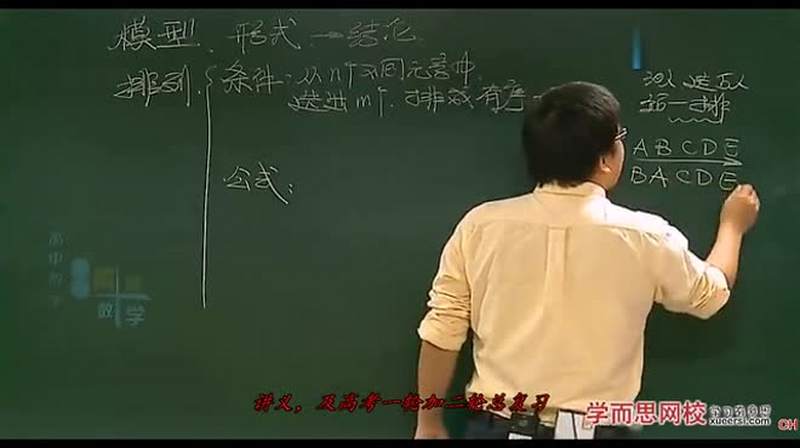 模型、形式→结论
排列
条件：从n个不同元素中，
选出m个，排成有序一
公式：
选五人
拍一排
A B C D E
B A C D E
高中数学
数学
讲义，及高考一轮加二轮总复习
学而思网校
xueersi.com
CH